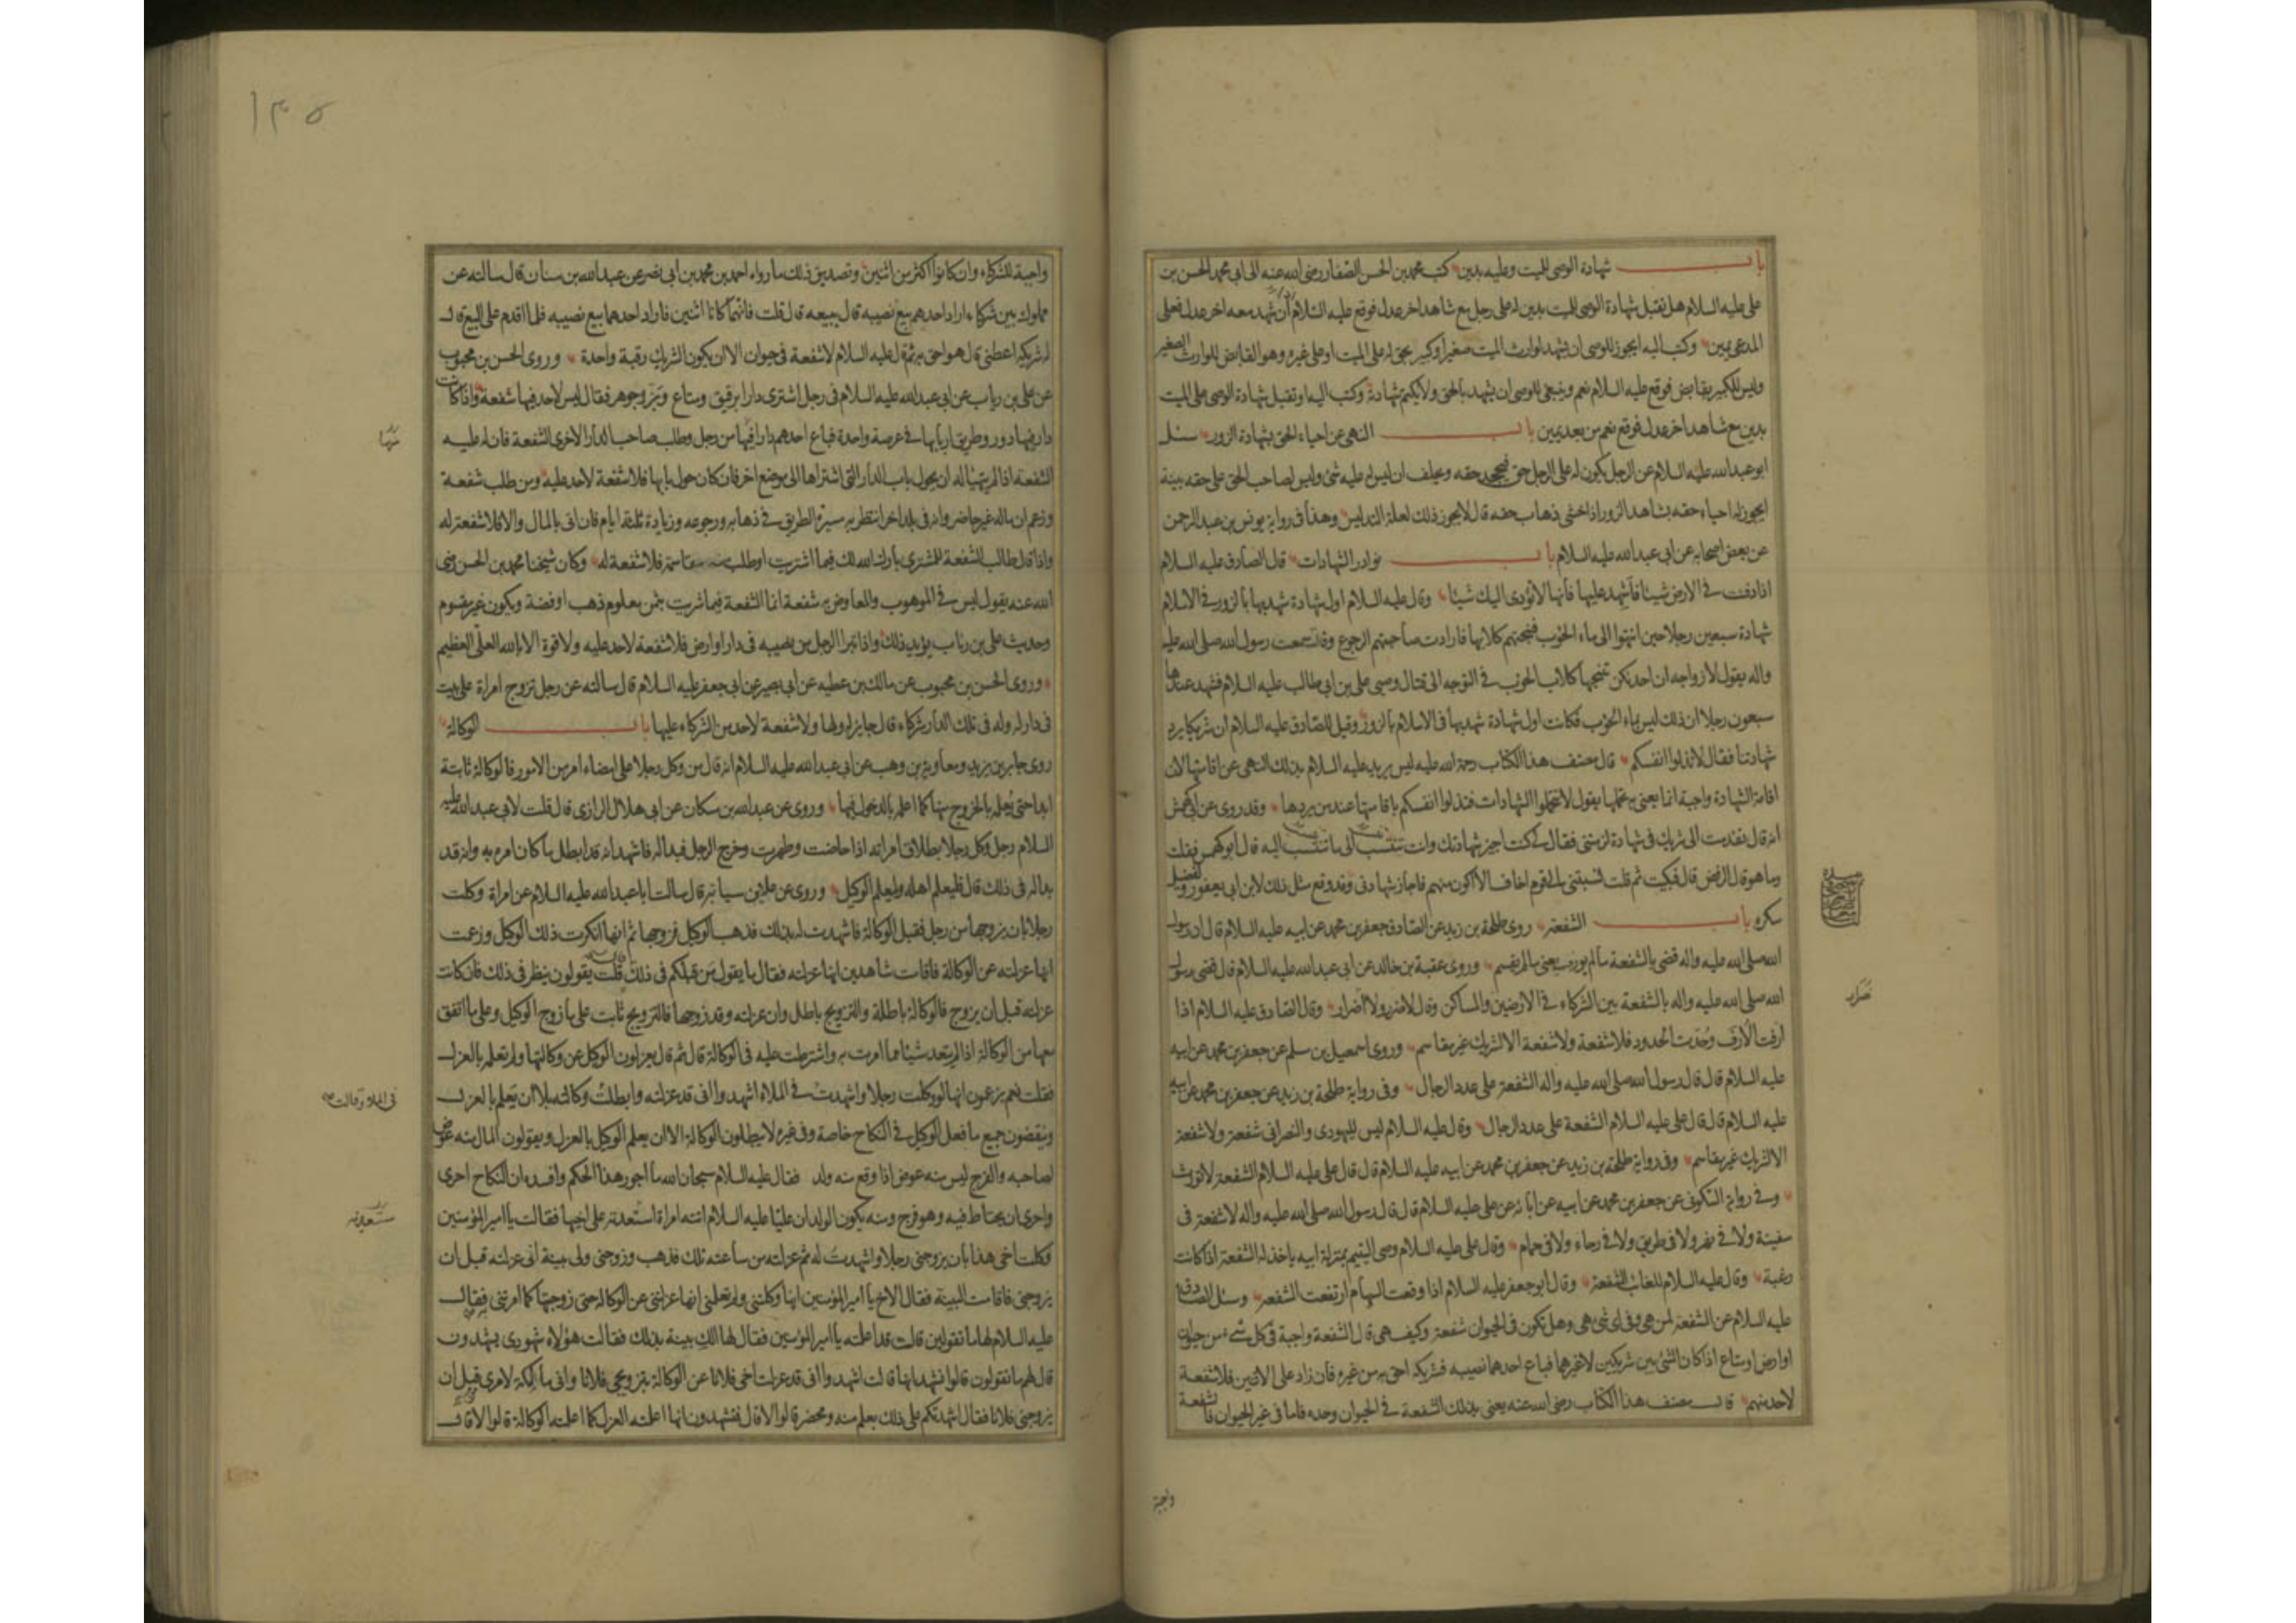 باب شهادة الوصى للميت وعليه بدين كتب محمد بن الحسن الصفار رضى الله عنه الى ابى محمد الحسن بن
على عليه السلام هل تقبل شهادة الوصى للميت بدين له على رجل مع شاهد اخر عدل فوقع عليه السلام ان شهد معه اخر عدل فعلى
المدعى يمين وكتب اليه ايجوز للوصى ان يشهد لوارث الميت صغيرا وكبير بحق له على الميت او على غيره وهو القابض للوارث الصغير
وليس للكبير بقابض فوقع عليه السلام نعم وينبغى للوصى ان يشهد بالحق ولا يكتم شهادة وكتب اليه او تقبل شهادة الوصى على الميت
بدين مع شاهد اخر عدل فوقع نعم من بعد يمين باب النهى عن احياء الحق بشهادة الزور سئل
ابو عبد الله عليه السلام عن الرجل يكون له على الرجل حق فيجحد حقه ويحلف ان ليس له عليه شئ وليس لصاحب الحق على حقه بينة
ايجوز له احياء حقه بشاهد الزور اذا خشى ذهاب حقه قال لا يجوز ذلك لعلة التدليس وهذا فى رواية يونس بن عبد الرحمن
عن بعض اصحابه عن ابى عبد الله عليه السلام باب نوادر الشهادات قال الصادق عليه السلام
اذا دفنت فى الارض شيئا فاشهد عليها فانها لا تؤدى اليك شيئا وقال عليه السلام اول شهادة شهد بها بالزور فى الاسلام
شهادة سبعين رجلا حين انتهوا الى ماء الحوب فنبحتهم كلابها فارادت صاحبتهم الرجوع وقالت سمعت رسول الله صلى الله عليه
واله يقول لازواجه ان احديكن تنبحها كلاب الحوب فى التوجه الى قتال وصيى على بن ابى طالب عليه السلام فشهد عندها
سبعون رجلا ان ذلك ليس بماء الحوب فكانت اول شهادة شهد بها فى الاسلام بالزور وقيل للصادق عليه السلام ان شريكا يرد
شهادتنا فقال لا تذلوا انفسكم قال مصنف هذا الكتاب رحمة الله عليه ليس يريد عليه السلام بذلك النهى عن اقامتها لان
اقامة الشهادة واجبة انما يعنى به تحملها يقول لا تتحملوا الشهادات فتذلوا انفسكم باقامتها عند من يردها وقد روى عن ابى كهمش
انه قال تقدمت الى شريك فى شهادة لزمتنى فقال لى كنت اجيز شهادتك وانت تنسب الى ما تنسب اليه قال ابو كهمس فقلت
وما هو قال الرفض قال فبكيت ثم قلت نسبتنى الى قوم اخاف الا اكون منهم فاجاز شهادتى وقد وقع مثل ذلك لابن ابى يعفور ولفضيل
سكره باب الشفعة روى طلحة بن زيد عن الصادق جعفر بن محمد عن ابيه عليه السلام قال ان رسول
الله صلى الله عليه واله قضى بالشفعة ما لم يورف يعنى ما لم يقسم وروى عقبة بن خالد عن ابى عبد الله عليه السلام قال قضى رسول
الله صلى الله عليه واله بالشفعة بين الشركاء فى الارضين والمساكن وقال لا ضرر ولا اضرار وقال الصادق عليه السلام اذا
ارفت الارف وحدت الحدود فلا شفعة ولا شفعة الا لشريك غير مقاسم وروى اسمعيل بن مسلم عن جعفر بن محمد عن ابيه
عليه السلام قال قال رسول الله صلى الله عليه واله الشفعة على عدد الرجال وفى رواية طلحة بن زيد عن جعفر بن محمد عن ابيه
عليه السلام قال قال على عليه السلام الشفعة على عدد الرجال وقال عليه السلام ليس لليهودى والنصرانى شفعة ولا شفعة
الا لشريك غير مقاسم وفى رواية طلحة بن زيد عن جعفر بن محمد عن ابيه عليه السلام قال قال على عليه السلام الشفعة لا تورث
وفى رواية السكونى عن جعفر بن محمد عن ابيه عن ابائه عن على عليه السلام قال قال رسول الله صلى الله عليه واله لا شفعة فى
سفينة ولا فى نهر ولا فى طريق ولا فى رحاء ولا فى حمام وقال على عليه السلام وصى اليتيم بمنزلة ابيه ياخذ له الشفعة اذا كانت
رغبة وقال عليه السلام للغائب الشفعة وقال ابو جعفر عليه السلام اذا وقعت السهام ارتفعت الشفعة وسئل الصادق
عليه السلام عن الشفعة لمن هى وفى اى شئ هى وهل تكون فى الحيوان شفعة وكيف هى قال الشفعة واجبة فى كل شىء من حيوان
او ارض او متاع اذا كان الشئ بين شريكين لا غيرهما فباع احدهما نصيبه فشريكه احق به من غيره فان زاد على الاثنين فلا شفعة
لاحد منهم قال مصنف هذا الكتاب رضى الله عنه يعنى بذلك الشفعة فى الحيوان وحده فاما فى غير الحيوان فالشفعة
واجبة
ضرار
١٣٥
واجبة للشركاء وان كانوا اكثر من اثنين وتصديق ذلك ما رواه احمد بن محمد بن ابى نصر عن عبد الله بن سنان قال سالته عن
مملوك بين شركاء اراد احدهم بيع نصيبه قال يبيعه قال قلت فانهما كانا اثنين فاراد احدهما بيع نصيبه فلما اقدم على البيع قال
له شريكه اعطنى قال هو احق به ثم قال عليه السلام لا شفعة فى حيوان الا ان يكون الشريك رقبة واحدة وروى الحسن بن محبوب
عن على بن رياب عن ابى عبد الله عليه السلام فى رجل اشترى دارا برقيق ومتاع وبز وجوهر فقال ليس لاحد فيها شفعة واذا كانت
دار فيها دور وطريق اربابها فى عرصة واحدة فباع احدهم دارا فيها من رجل وطلب صاحب الدار الاخرى الشفعة فان له عليه
الشفعة اذا لم يتهيا له ان يحول باب الدار التى اشتراها الى موضع اخر فان كان حول بابها فلا شفعة لاحد عليه ومن طلب شفعة
وزعم ان ماله غير حاضر وانه فى بلد اخر انتظر به مسيرة الطريق فى ذهابه ورجوعه وزيادة ثلثة ايام فان اتى بالمال والا فلا شفعة له
واذا قال طالب الشفعة للمشترى بارك الله لك فيما اشتريت او طلب منه مقاسمة فلا شفعة له وكان شيخنا محمد بن الحسن رضى
الله عنه يقول ليس فى الموهوب والمعاوض به شفعة انما الشفعة فيما شريت بثمن معلوم ذهب او فضة ويكون غير مقسوم
وحديث على بن رئاب يؤيد ذلك واذا تبرا الرجل من نصيبه فى دار او ارض فلا شفعة لاحد عليه ولا قوة الا بالله العلى العظيم
وروى الحسن بن محبوب عن مالك بن عطيه عن ابى بصير عن ابى جعفر عليه السلام قال سالته عن رجل تزوج امراة على بيت
فى دار له وله فى تلك الدار شركاء قال جايز له ولها ولا شفعة لاحد من الشركاء عليها باب الوكالة
روى جابر بن يزيد ومعاوية بن وهب عن ابى عبد الله عليه السلام انه قال من وكل رجلا على امضاء امر من الامور فالوكالة ثابتة
ابدا حتى يعلمه بالخروج منها كما اعلمه بالدخول فيها وروى عن عبد الله بن مسكان عن ابى هلال الرازى قال قلت لابى عبد الله عليه
السلام رجل وكل رجلا بطلاق امراته اذا حاضت وطهرت وخرج الرجل فبدا له فاشهد انه قد ابطل ما كان امره به وانه قد
بدا له فى ذلك قال فليعلم اهله وليعلم الوكيل وروى عن علا بن سيابة قال سالت ابا عبد الله عليه السلام عن امراة وكلت
رجلا بان يزوجها من رجل فقبل الوكالة فاشهدت له بذلك فذهب الوكيل فزوجها ثم انها انكرت ذلك الوكيل وزعمت
انها عزلته عن الوكالة فاقامت شاهدين انها عزلته فقال ما يقول من قبلكم فى ذلك قلت يقولون ينظر فى ذلك فان كانت
عزلته قبل ان يزوج فالوكالة باطلة والتزويج باطل وان عزلته وقد زوجها فالتزويج ثابت على ما زوج الوكيل وعلى ما اتفق
معها من الوكالة اذا لم يتعد شيئا مما امرت به واشترطت عليه فى الوكالة قال ثم قال يعزلون الوكيل عن وكالتها ولم تعلمه بالعزل
فقلت نعم يزعمون انها لو وكلت رجلا واشهدت فى الملاء اشهدوا انى قد عزلته وابطلت وكالته بلا ان يعلم بالعزل
وينقضون جميع ما فعل الوكيل فى النكاح خاصة وفى غيره لا يبطلون الوكالة الا ان يعلم الوكيل بالعزل ويقولون المال منه عوض
لصاحبه والفرج ليس منه عوض اذا وقع منه ولد فقال عليه السلام سبحان الله ما اجور هذا الحكم وافسده ان النكاح احرى
واحرى ان يحتاط فيه وهو فرج ومنه يكون الولد ان عليا عليه السلام اتته امراة استعدته على اخيها فقالت يا امير المؤمنين
وكلت اخى هذا بان يزوجنى رجلا واشهدت له ثم عزلته من ساعته تلك فذهب وزوجنى ولى بينة انى عزلته قبل ان
يزوجنى فاقامت البينة فقال الاخ يا امير المؤمنين انها وكلتنى ولم تعلمنى انها عزلتنى عن الوكالة حتى زوجتها كما امرتنى فقال
عليه السلام لها ما تقولين قالت قد اعلمته يا امير المؤمنين فقال لها الك بينة بذلك فقالت هؤلاء شهودى يشهدون
قال لهم ما تقولون قالوا نشهد انها قالت اشهدوا انى قد عزلت اخى فلانا عن الوكالة بتزويجى فلانا وانى مالكة لامرى قبل ان
يزوجنى فلانا فقال اشهدتكم على ذلك بعلم منه ومحضر قالوا لا قال فتشهدون انها اعلمته العزل كما اعلمته الوكالة قالوا لا قال
منها
فى الملا وقالت
مستعديه